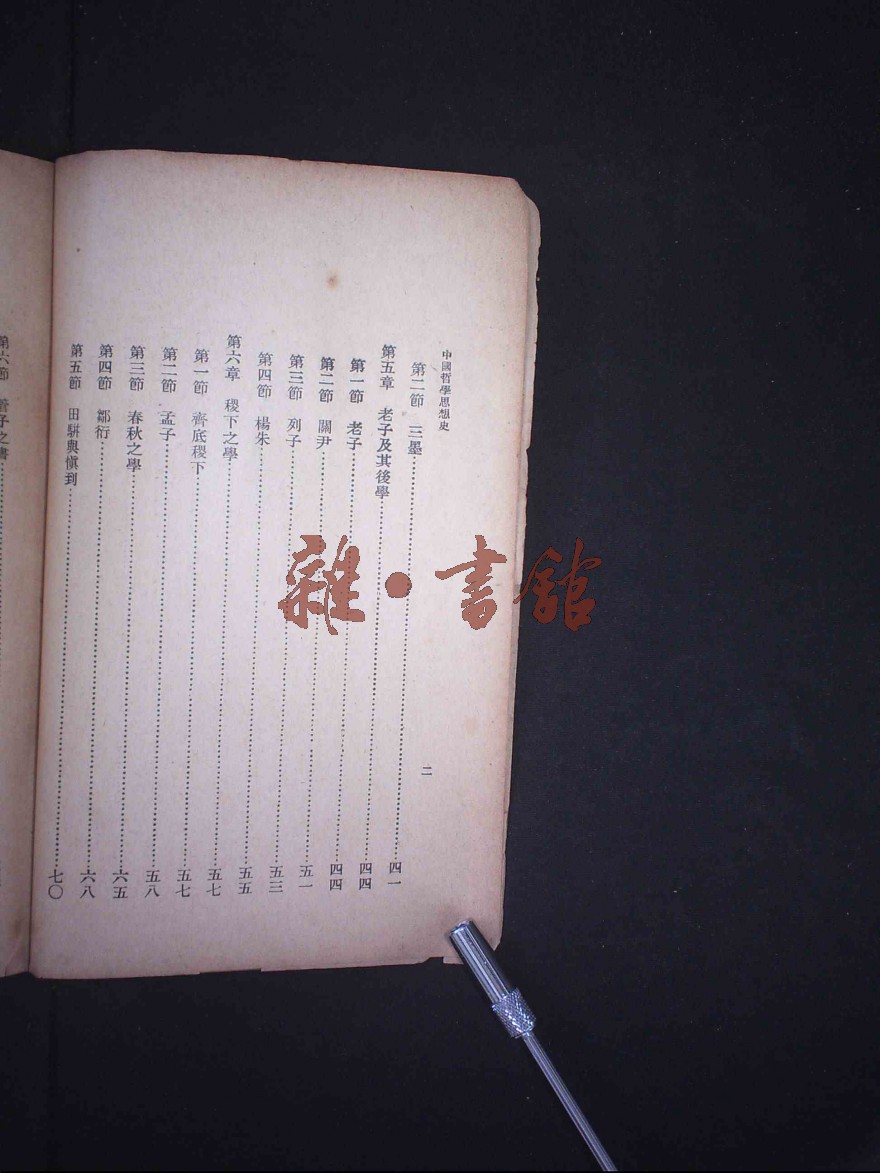 中國哲學思想史
二
第二節 三墨……四一
第五章 老子及其後學……四四
第一節 老子……四四
第二節 關尹……五一
第三節 列子……五三
第四節 楊朱……五五
第六章 稷下之學……五七
第一節 齊底稷下……五七
第二節 孟子……五八
第三節 春秋之學……六五
第四節 鄒衍……六八
第五節 田駢與愼到……七〇
第六節 管子之書
雜·書館